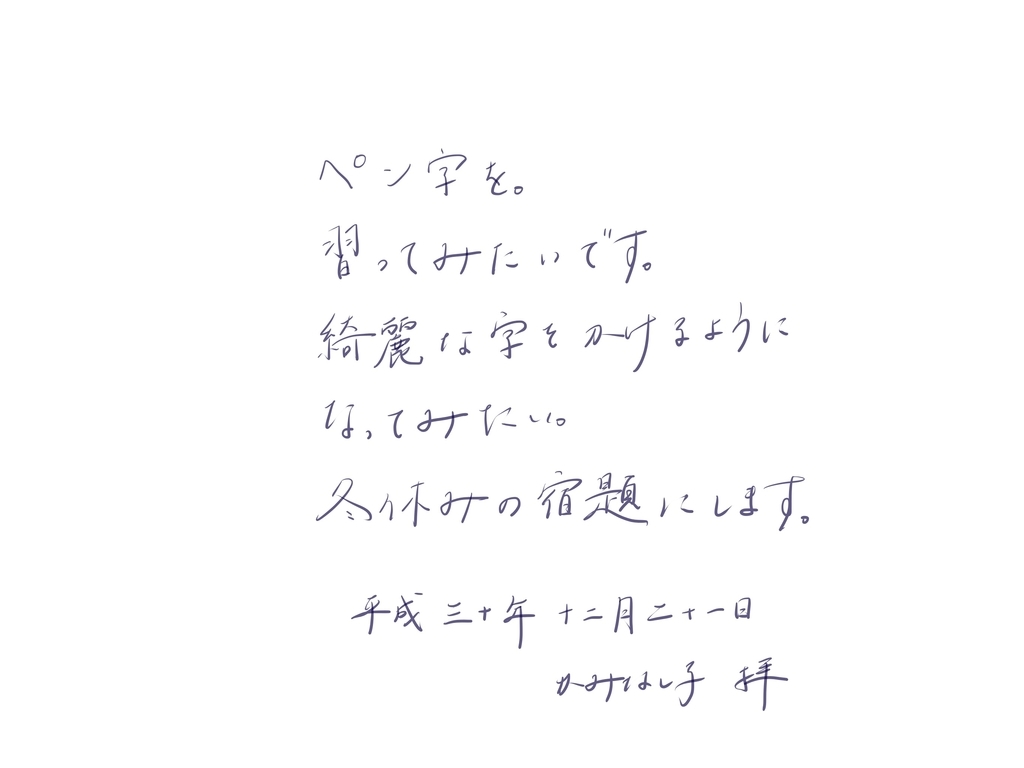 ペン字を。
習ってみたいです。
綺麗な字をかけるように
なってみたい。
冬休みの宿題にします。
平成三十年 十二月二十一日
かみはし子 拝